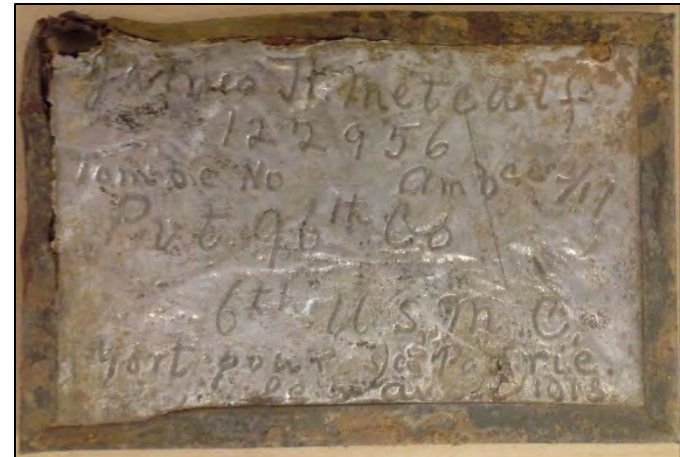 James H. Metcalf
122956
Tombe No Ambce 7/17
Pvt. 96th Co
6th U S. M. C.
Mort pour La Patrie.
1918